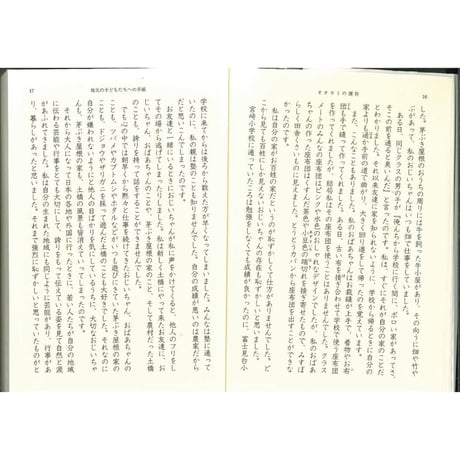 16
オオカミの護符
した。茅ぶき屋根のおうちの周りには
があって、私のおじいちゃんはいつも畑で仕事をしていました。
ある日、同じクラスの男の子が「俺んちから学校に行く間に、ボロい家があってさ、
そこの前を通ると臭いんだ」と言ったのです。私は、すぐにそれが自分の家のことだと
わかりました。それ以来友達に家を知られないように、学校から帰るときに自分の
家よりも通り手前の道で曲がり、大きく回り道をして帰ったのを覚えています。
また、こんなこともありました。私のおばあちゃんはお裁縫が上手で、着物やお布
団も手で縫って作ってくれました。ある日、古い布を接ぎ合わせて学校で使う座布団
を作ってくれましたが、結局私はその座布団を使うことはありませんでした。クラス
メートのみんなの座布団はピンクや水色のおしゃれなデザインでしたが、私のおばあ
ちゃんの作った座布団は
らしく田舎くさいものに見えました。
かったのです。
私は自分の家がお百姓の家だというのが恥ずかしくて仕方がありませんでした。ど
こから見てもお百姓にしか見えないおじいちゃんの存在も恥ずかしいと思いました。
宮崎小学校に通っていたころは勉強をしなくても成績が良かったのに、富士見台小
17
地元の子どもたちへの手紙
学校に来てからは後ろから数えた方が早くなってしまいました。みんなは塾に通って
いたのに、私の親は塾のことも知りませんでした。自分の成績が悪いのは農家だから
だと思いこんでしまったのです。
お友達と一緒にいるときにおじいちゃんが私に声をかけてくると、他人のフリをし
てその場から逃げてしまったりしました。私は新しく土橋にやって来たお友達に、お
じいちゃん、おばあちゃんのことや、茅ぶき屋根の家のこと、そして農村だった土橋
のことも、誇りを持って話をすることができませんでした。
でも、心の中では朝早くから黙々と仕事を続けていたおじいちゃん、おばあちゃんの
ことも、ツバメやカブトムシやホタルなどがいつも遊びにきていた茅ぶき屋根の家の
ことも、ドジョウやザリガニを採って遊んだ土橋のことも大好きでした。それなのに
自分が嫌われないようにと他人の目ばかりを気にしているうちに、大切なおじいちゃ
んも、茅ぶき屋根の家も、土橋の風景も皆消えていってしまったのです。
それから大人になって日本の各地や外国に行ったとき、若い人たちが自分の地域
に伝わる芸能や行事をとても大切にして、誇りをもって伝えている姿を見て自然と涙
があふれてきました。私は自分の生まれた地域にも同じように芸能があり、行事があ
り、暮らしがあったと思いました。それまで強烈に恥ずかしいと思っていたものがと